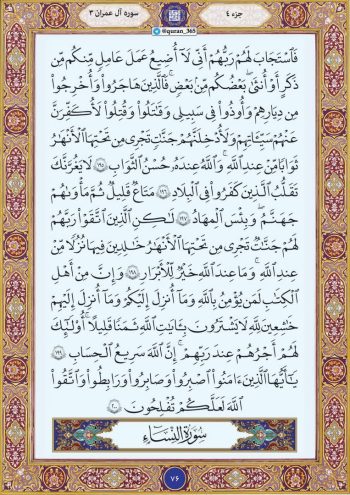 جزء ٤
سورة آل عمران ٣
@quran_365
فَٱسْتَجَابَ لَهُمْ رَبُّهُمْ أَنِّي لَآ أُضِيعُ عَمَلَ عَٰمِلٍ مِّنكُم مِّن
ذَكَرٍ أَوْ أُنثَىٰۖ بَعْضُكُم مِّنۢ بَعْضٍۖ فَٱلَّذِينَ هَاجَرُواْ وَأُخْرِجُواْ
مِن دِيَٰرِهِمْ وَأُوذُواْ فِي سَبِيلِي وَقَٰتَلُواْ وَقُتِلُواْ لَأُكَفِّرَنَّ
عَنْهُمْ سَيِّـَٔاتِهِمْ وَلَأُدْخِلَنَّهُمْ جَنَّٰتٍ تَجْرِي مِن تَحْتِهَا ٱلْأَنْهَٰرُ
ثَوَابًا مِّنْ عِندِ ٱللَّهِۚ وَٱللَّهُ عِندَهُۥ حُسْنُ ٱلثَّوَابِ ١٩٥ لَا يَغُرَّنَّكَ
تَقَلُّبُ ٱلَّذِينَ كَفَرُواْ فِي ٱلْبِلَٰدِ ١٩٦ مَتَٰعٌ قَلِيلٌ ثُمَّ مَأْوَىٰهُمْ
جَهَنَّمُۖ وَبِئْسَ ٱلْمِهَادُ ١٩٧ لَٰكِنِ ٱلَّذِينَ ٱتَّقَوْاْ رَبَّهُمْ
لَهُمْ جَنَّٰتٌ تَجْرِي مِن تَحْتِهَا ٱلْأَنْهَٰرُ خَٰلِدِينَ فِيهَا نُزُلًا مِّنْ
عِندِ ٱللَّهِۗ وَمَا عِندَ ٱللَّهِ خَيْرٌ لِّلْأَبْرَارِ ١٩٨ وَإِنَّ مِنْ أَهْلِ
ٱلْكِتَٰبِ لَمَن يُؤْمِنُ بِٱللَّهِ وَمَآ أُنزِلَ إِلَيْكُمْ وَمَآ أُنزِلَ إِلَيْهِمْ
خَٰشِعِينَ لِلَّهِ لَا يَشْتَرُونَ بِـَٔايَٰتِ ٱللَّهِ ثَمَنًا قَلِيلًاۗ أُوْلَٰٓئِكَ
لَهُمْ أَجْرُهُمْ عِندَ رَبِّهِمْۗ إِنَّ ٱللَّهَ سَرِيعُ ٱلْحِسَابِ ١٩٩
يَٰٓأَيُّهَا ٱلَّذِينَ ءَامَنُواْ ٱصْبِرُواْ وَصَابِرُواْ وَرَابِطُواْ وَٱتَّقُواْ
ٱللَّهَ لَعَلَّكُمْ تُفْلِحُونَ ٢٠٠
سُورَةُ النِّسَاءِ
٧٦